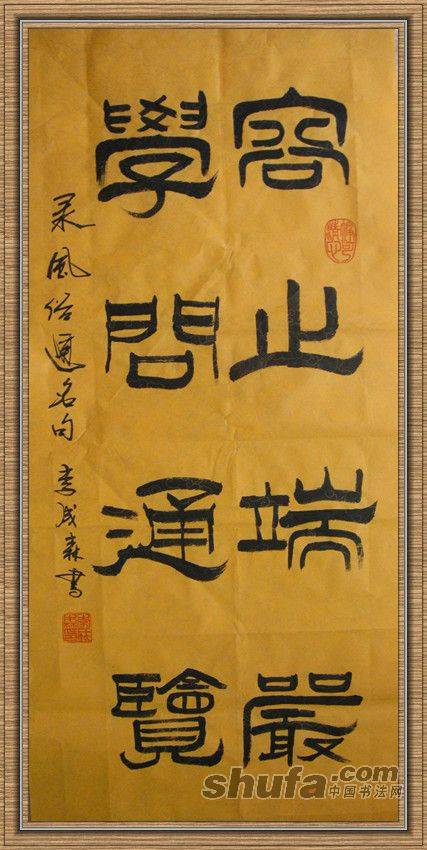 容止端嚴
學問通覽
录風俗通名句 李成森書
shufa.com
中国书法网